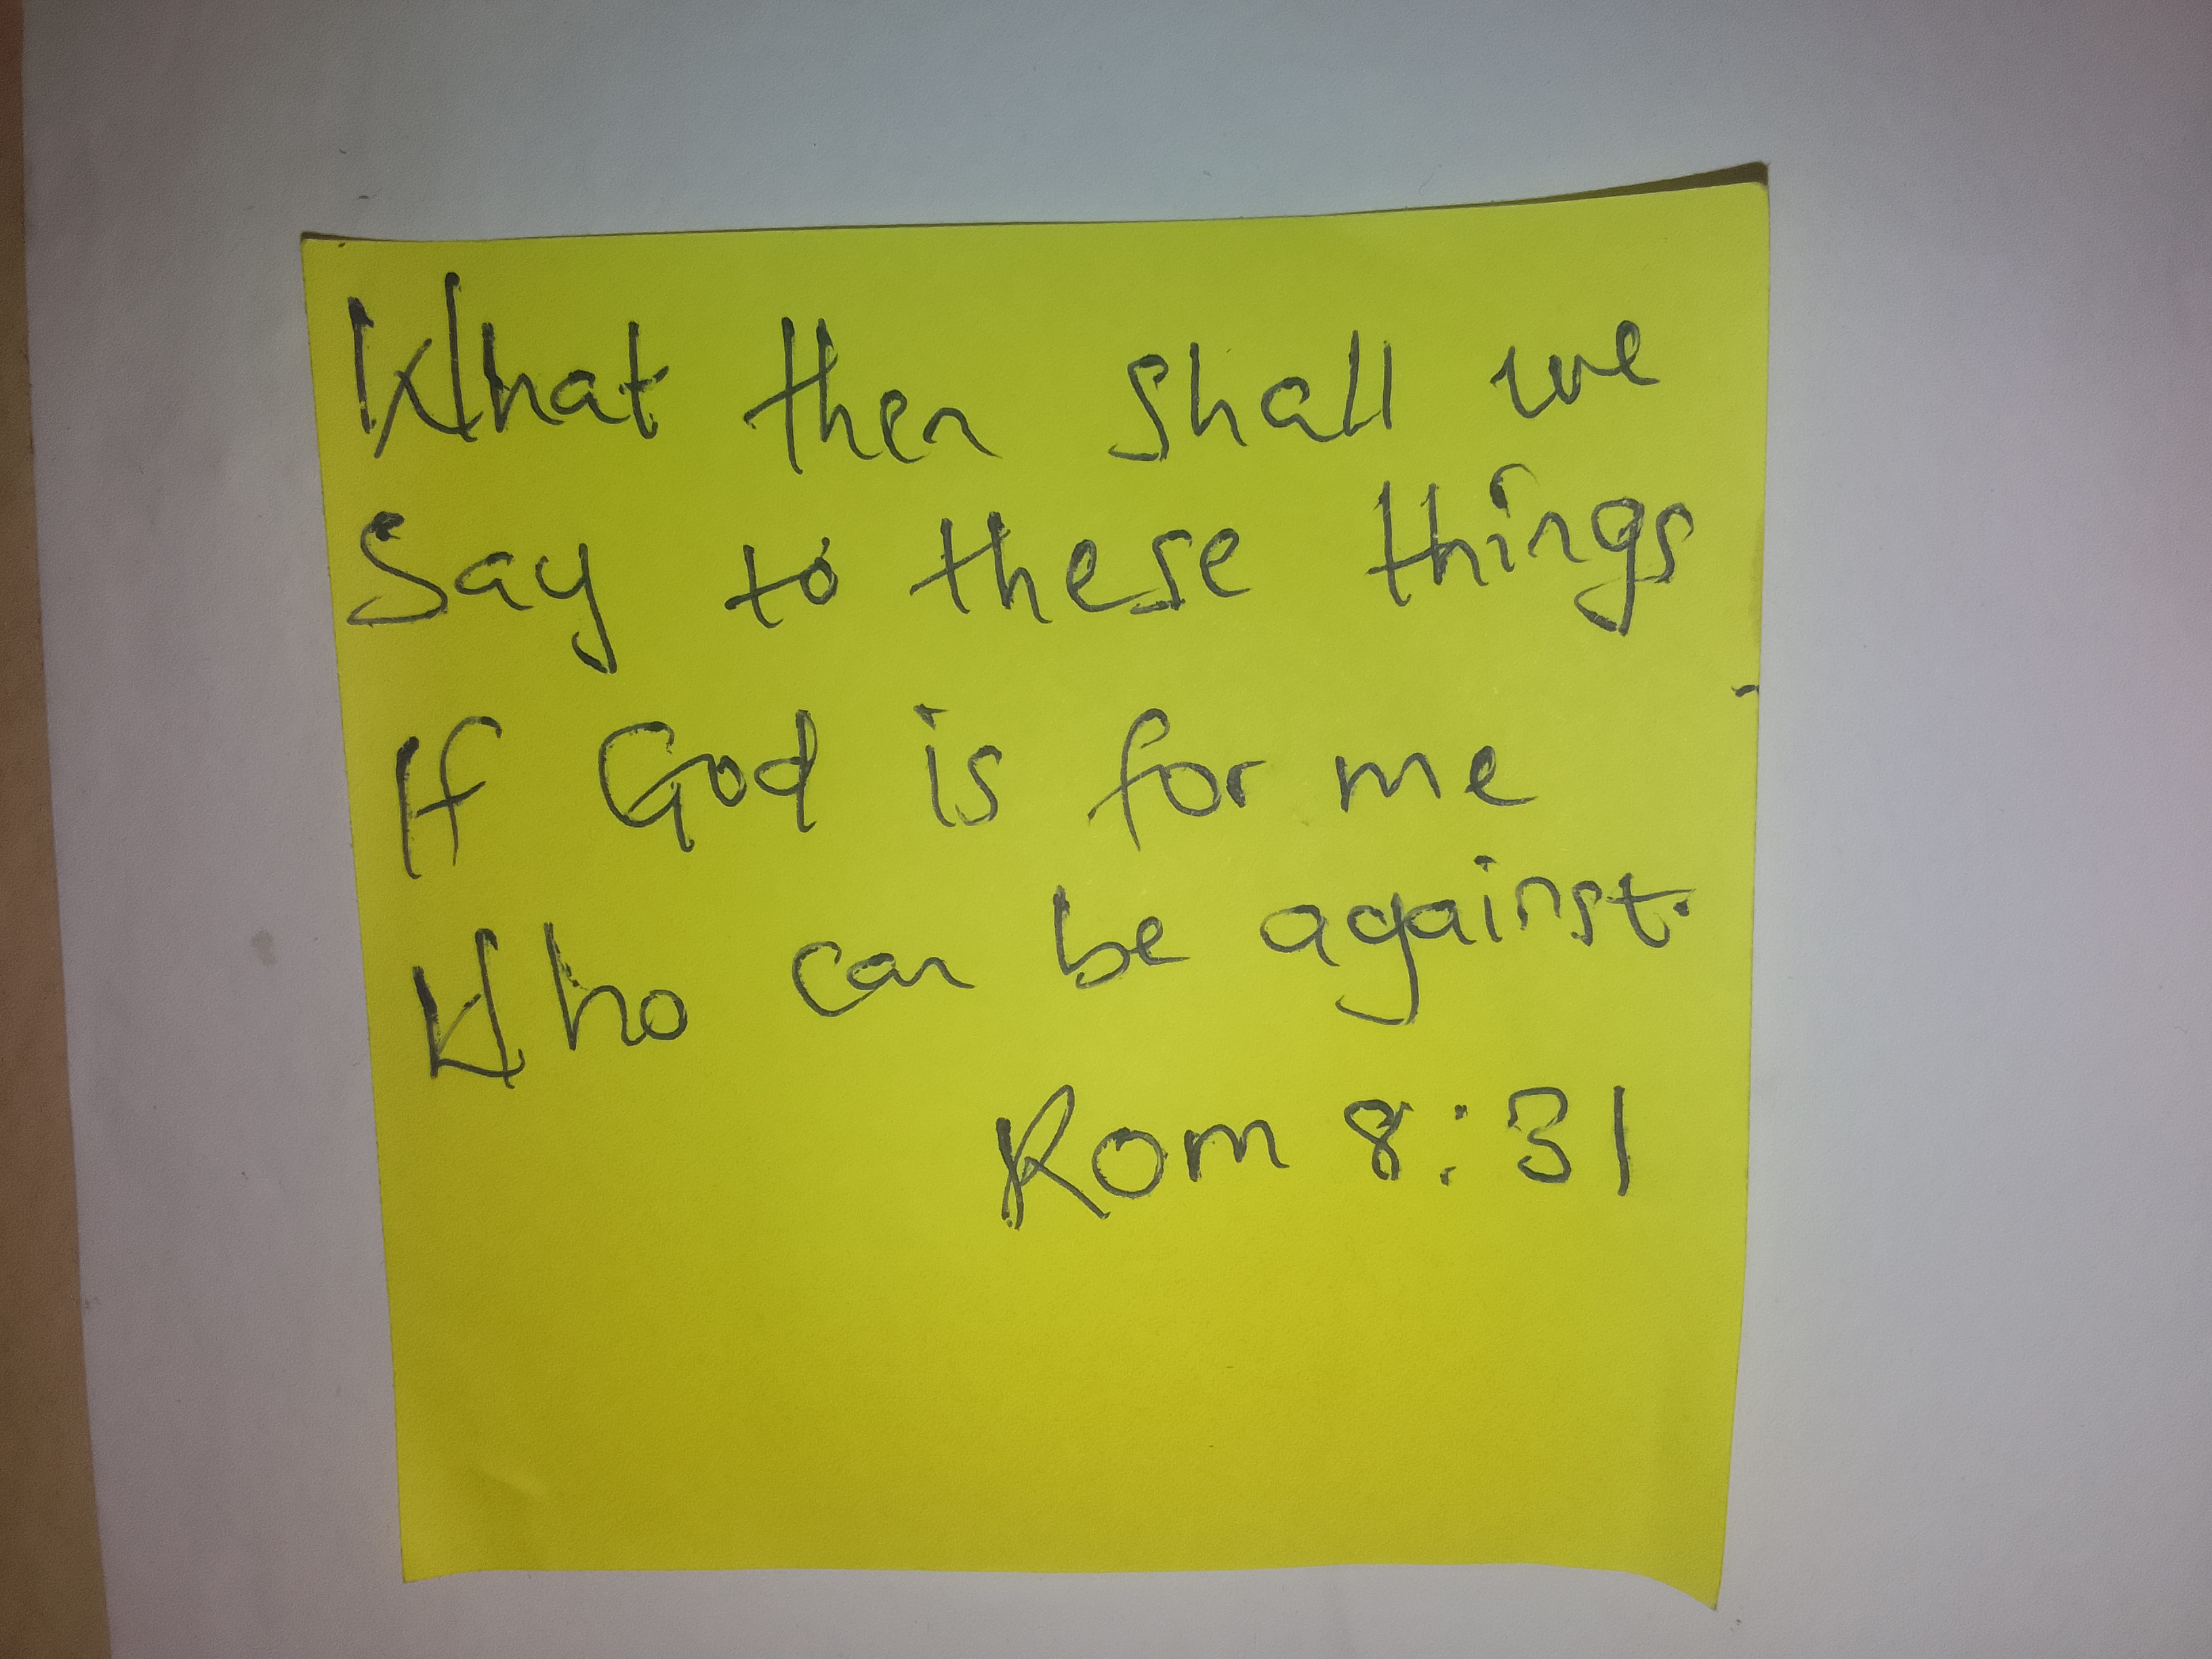 What then shall we
Say to these things
If God is for me
Who can be against.
Rom 8:31